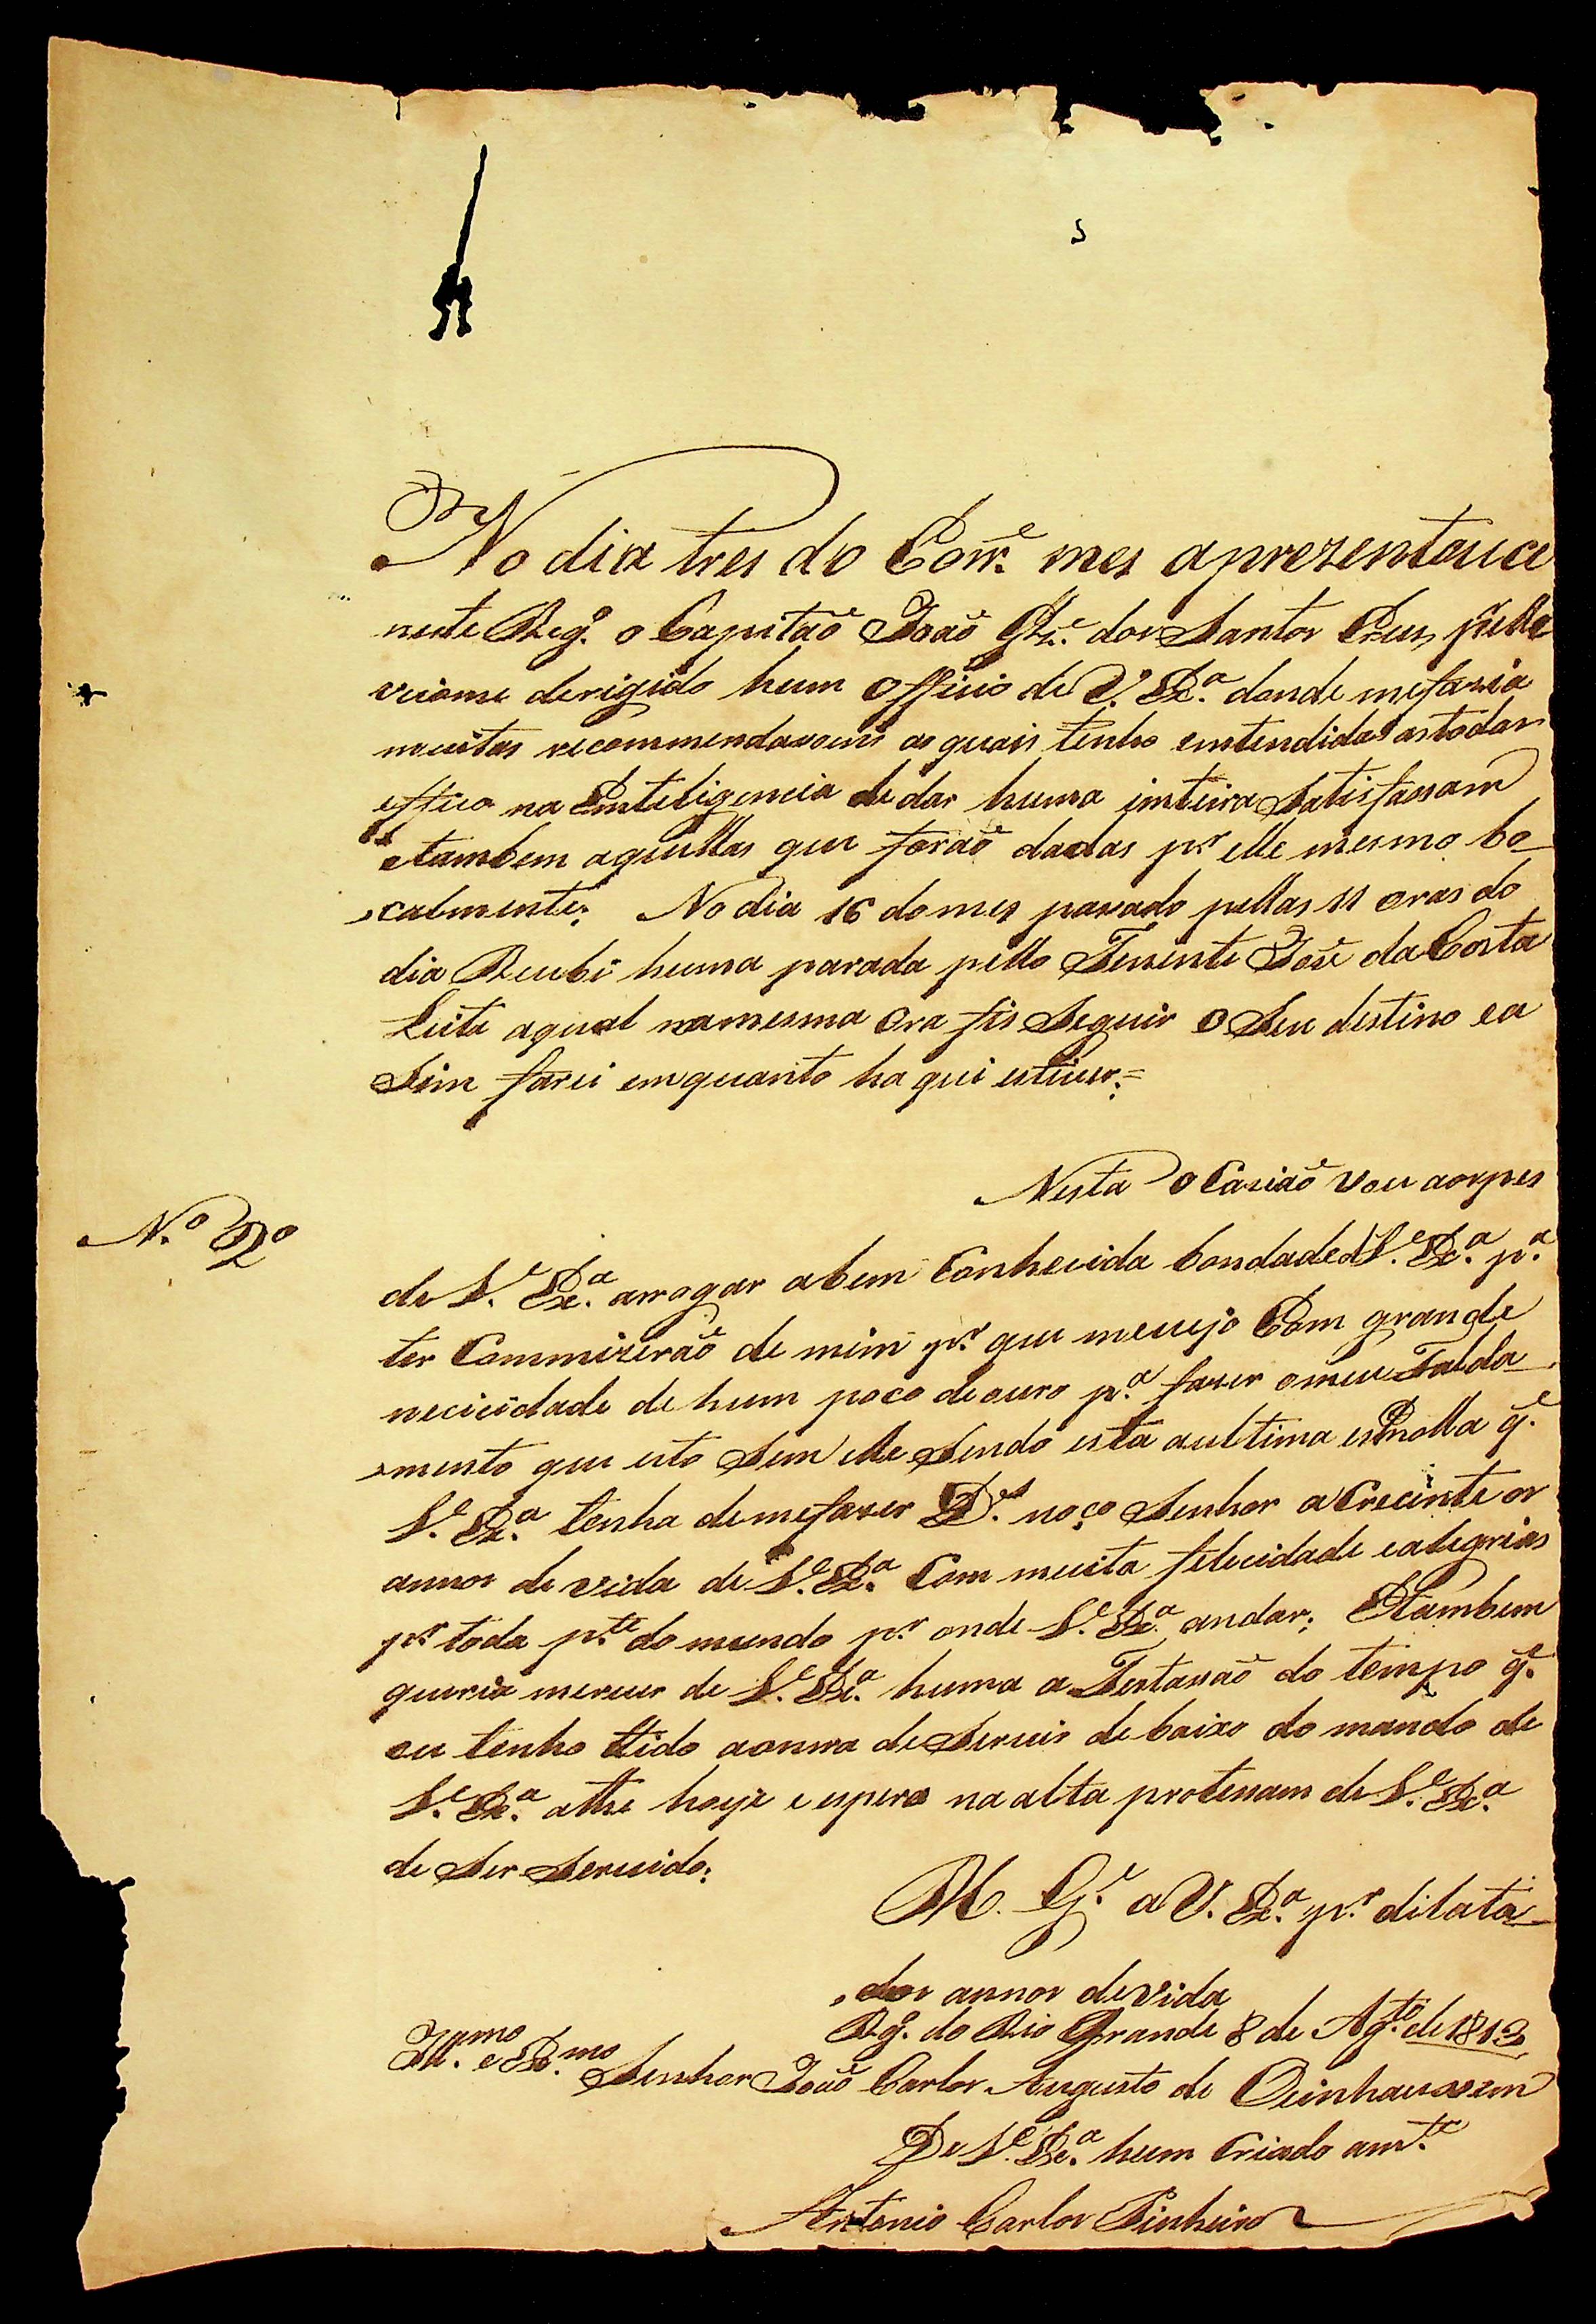 No dia tres do Corr.e mes aprezentouce
neste Reg.o o Capitaõ Joaõ Glz.e dos Santos Cruz, pelle
veiome derigido hum officio de V. Ex.a donde mefazia
muitas recommendasoens as quais tenho emtendidas astodas
efico na Emteligencia de dar huma imteira Satisfassam
etambem aquellas que foraõ dadas p.r elle mesmo bo_
calmente; No dia 16 domes pasado pellas 11 oras do
dia Recebi huma parada pello Tenente Joze da Costa
Leite aqual namesma Ora fis Seguir o Seu destino ea
Sim farei emquanto ha qui estiver;=
Nesta O Caziaõ vou aospes
N.o 2o
de V.e Ex.a arrogar abem Conhecida bondade d V.e Ex.a p.a
ter Commizeraõ de mim p.r que mevejo Com grande
necicidade de hum poco de ouro p.a fazer omeu Falda_
mento que esto Sem elle Sendo esta aultima esmolla q.e
V.e Ex.a tenha demefazer D.s noço Senhor a Crecinte os
annos de vida de V.e Ex.a Com muita felecidade ealegrias
p.r toda p.te do mundo p.r onde V.e Ex.a andar; Etambem
queria merecer de V.e Ex.a huma a Testasaõ do tempo q.e
eu tenho tido aonra de Servir de baixo do mando de
V.e Ex.a athe hoje e espero na alta protesam de V.e Ex.a
de Ser Servido:
G.e a V. Ex.a p.r dilata_
dos annos devida
Rg.o do Rio Grande 8 de Ag.to de 1813
Ill.mo e Ex.mo Senhor Joaõ Carlos Augusto de Oeinhaussem
De V.e Ex.a hum Criado am.te
Antonio Carlos Pinheiro